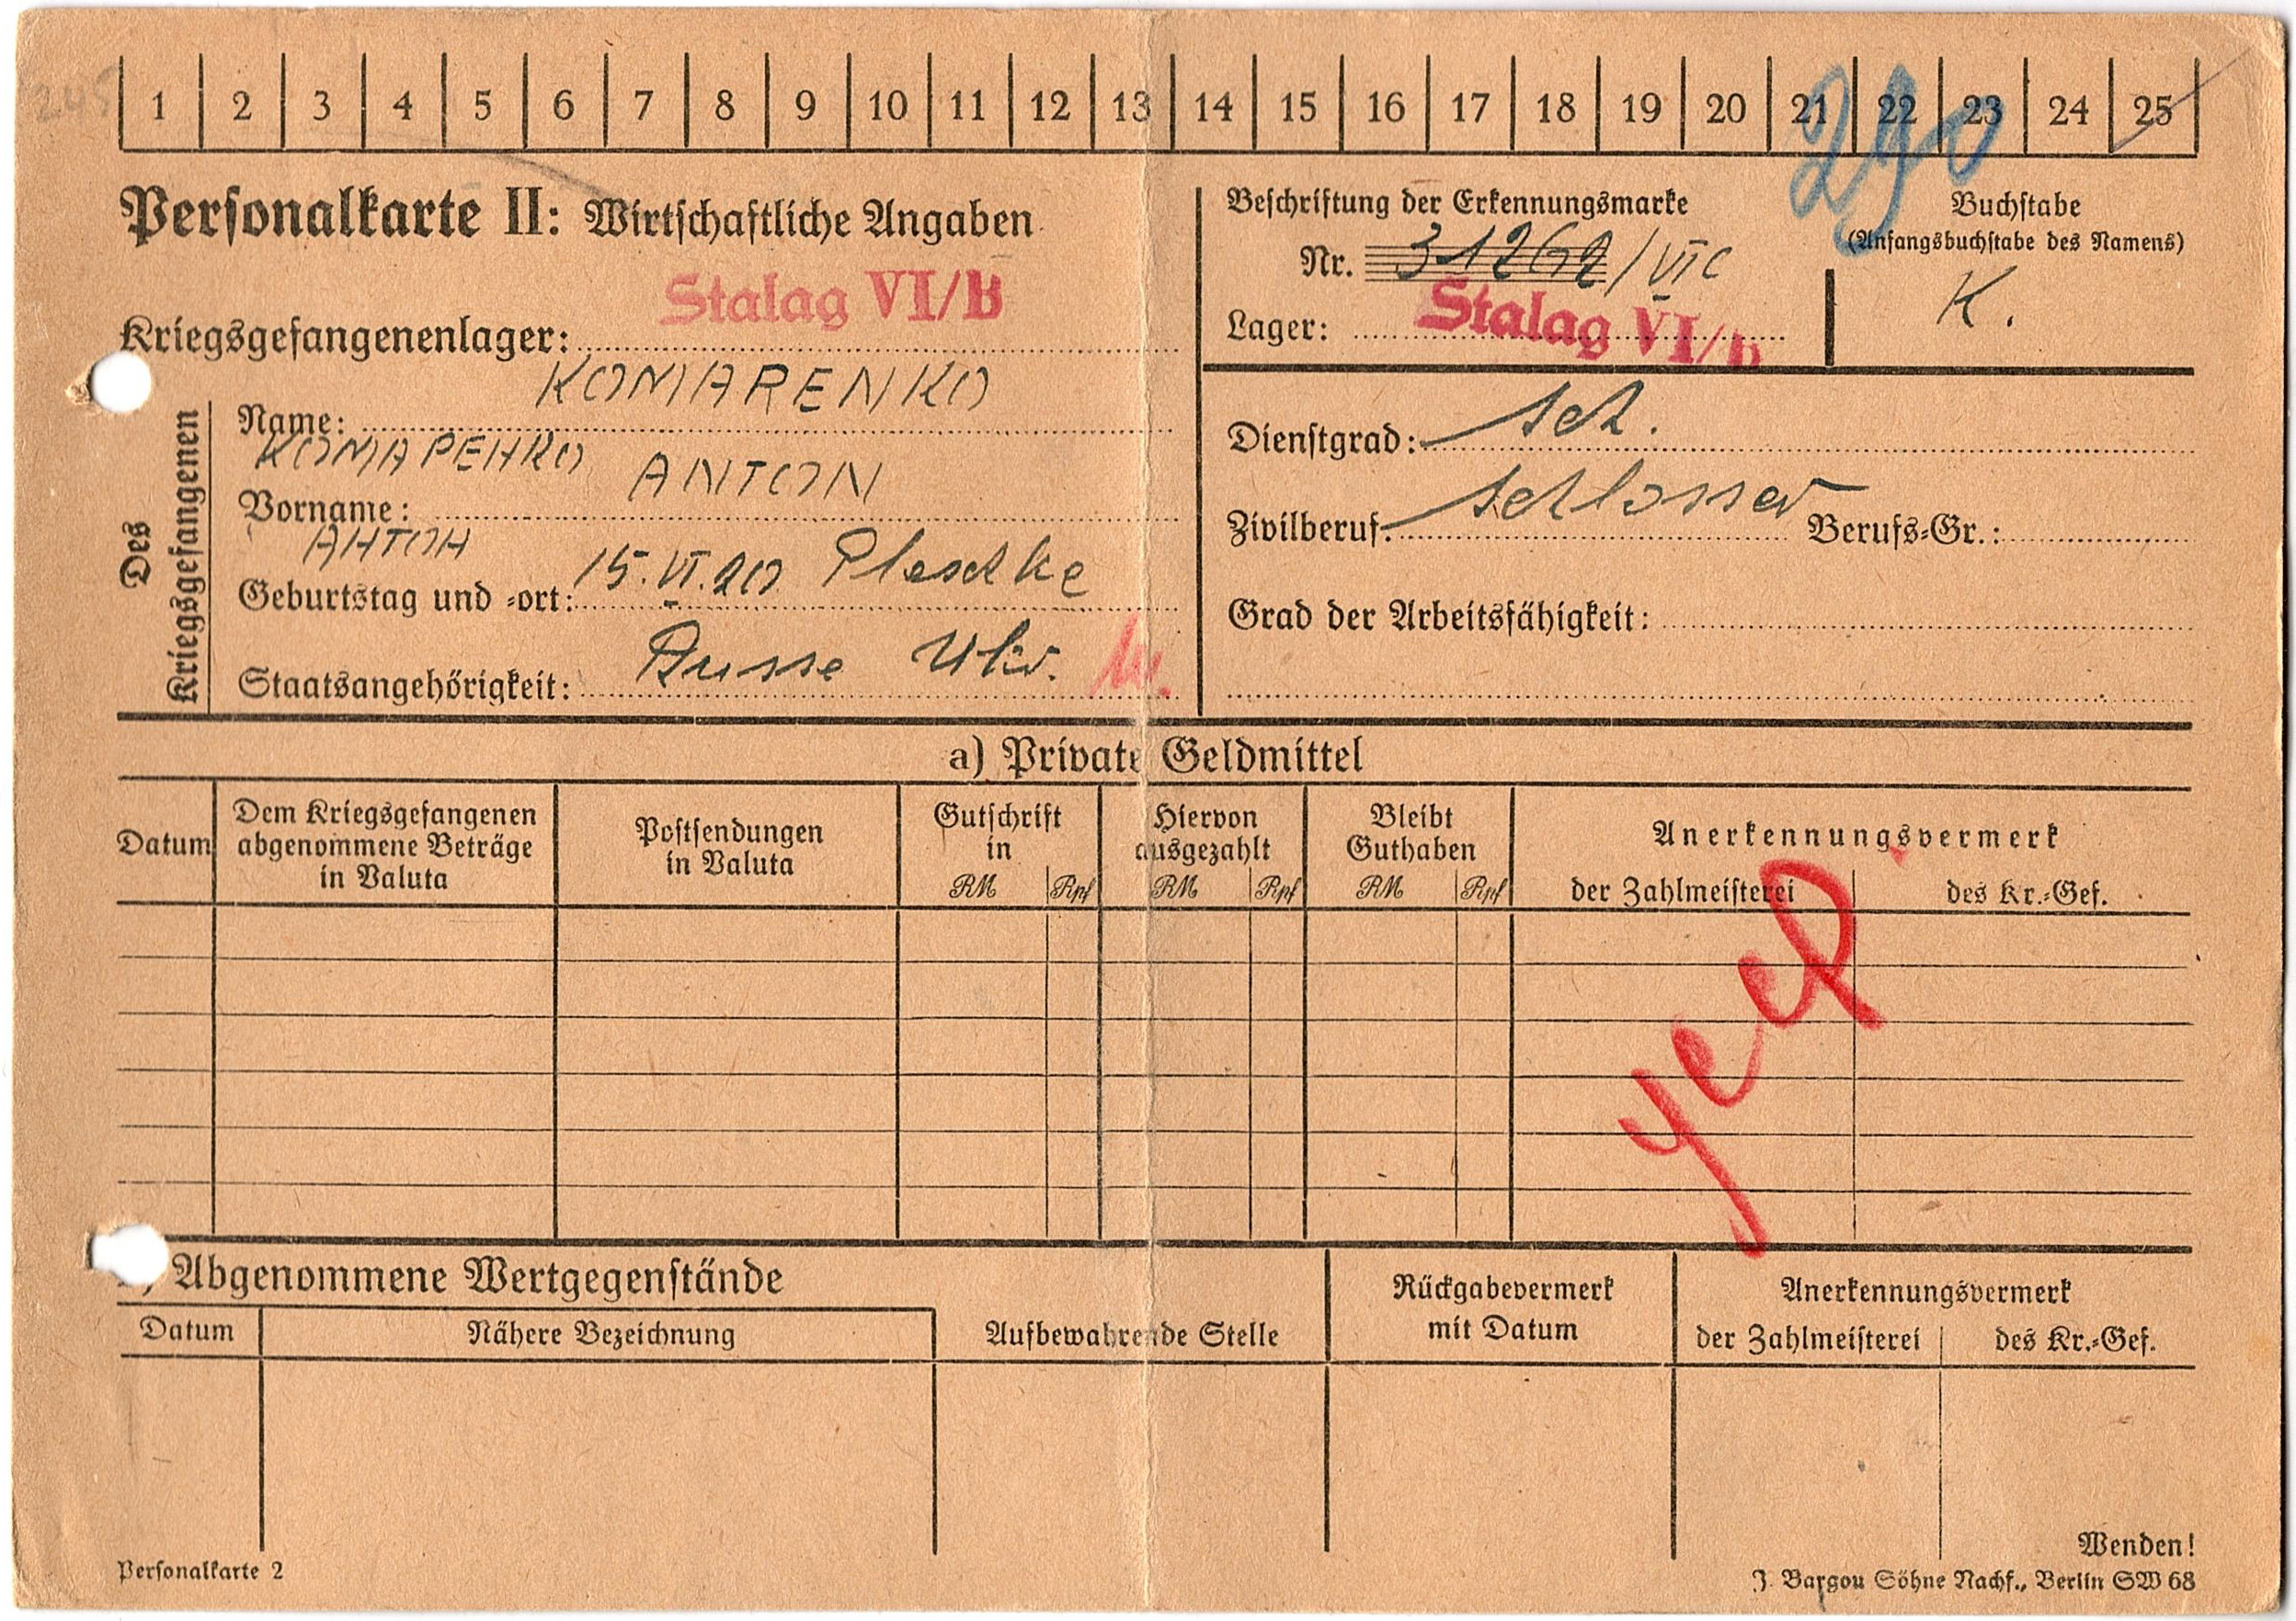 1 2 3 4 5 6 7 8 9 10 11 12 13 14 15 16 17 18 19 20 21 22 23 24 25
290
Personalkarte II: Wirtschaftliche Angaben
Stalag VI/B
Kriegsgefangenenlager:
Beschriftung der Erkennungsmarke
Nr. 31262/VI C
Lager: Stalag VI/B
Buchstabe
(Anfangsbuchstabe des Namens)
K.
Des Kriegsgefangenen
KOMARENKO
Name:
КОМАРЕНКО
ANTON
Vorname:
АНТОН
Geburtstag und -ort: 15.VI.20 Pleschke
Staatsangehörigkeit: Russe Ukr.
Dienstgrad: Sch.
Zivilberuf: Schlosser Berufs-Gr.:
Grad der Arbeitsfähigkeit:
a) Private Geldmittel
Datum
Dem Kriegsgefangenen
abgenommene Beträge
in Valuta
Postsendungen
in Valuta
Gutschrift
in
RM Rpf
Hiervon
ausgezahlt
RM Rpf
Bleibt
Guthaben
RM Rpf
Anerkennungsvermerk
der Zahlmeisterei des Kr.-Gef.
) Abgenommene Wertgegenstände
Datum Nähere Bezeichnung
Aufbewahrende Stelle
Rückgabevermerk
mit Datum
Anerkennungsvermerk
der Zahlmeisterei des Kr.-Gef.
Wenden!
Personalkarte 2
J. Bargou Söhne Nachf., Berlin SW 68